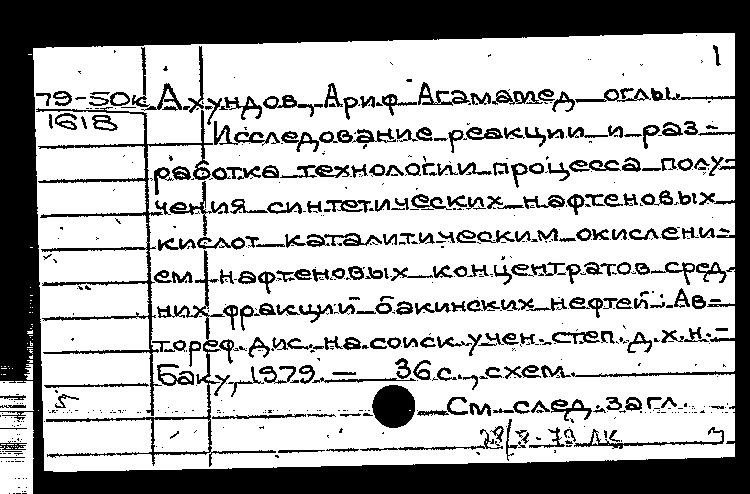 1
79-50к Ахундов, Ариф Агамамед оглы.
1618
Исследование реакции и раз-
работка технологии процесса полу-
чения синтетических нафтеновых
кислот каталитическим окислени-
ем нафтеновых концентратов сред-
них фракций бакинских нефтей: Ав-
тореф. дис. на соиск. учен. степ. д.х.н. -
Баку, 1979. — 36 с., схем.
См. след. загл.
28/8-79 ЛК